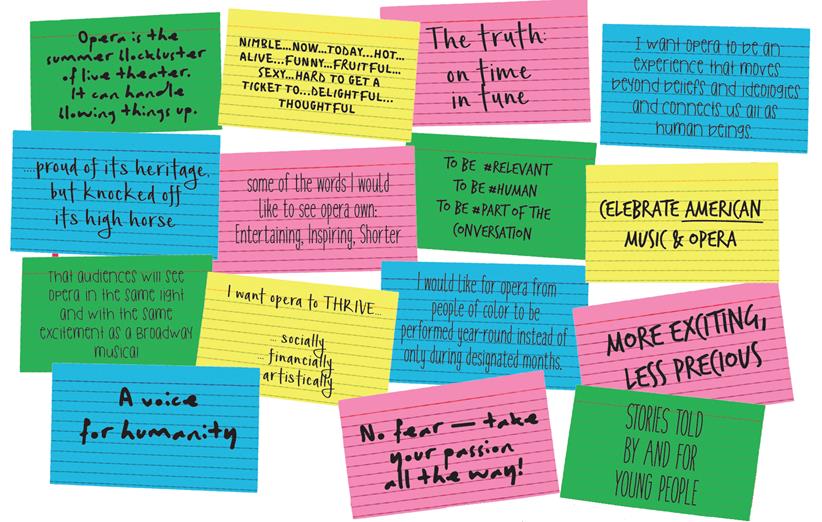 Opera is the
summer blockbuster
of live theater.
It can handle
blowing things up.
NIMBLE...NOW...TODAY...HOT...
ALIVE...FUNNY...FRUITFUL...
SEXY...HARD TO GET A
TICKET TO...DELIGHTFUL...
THOUGHTFUL
The truth:
on time
in tune
I want opera to be an
experience that moves
beyond beliefs and ideologies
and connects us all as
human beings.
...proud of its heritage,
but knocked off
its high horse
some of the words I would
like to see opera own:
Entertaining, Inspiring, Shorter
TO BE #RELEVANT
TO BE #HUMAN
TO BE #PART OF THE
CONVERSATION
CELEBRATE AMERICAN
MUSIC & OPERA
That audiences will see
opera in the same light
and with the same
excitement as a Broadway
musical
I want opera to THRIVE...
... socially
... financially
artistically
I would like for opera from
people of color to be
performed year-round instead of
only during designated months.
MORE EXCITING,
LESS PRECIOUS
A voice
for humanity
No fear — take
your passion
all the way!
STORIES TOLD
BY AND FOR
YOUNG PEOPLE